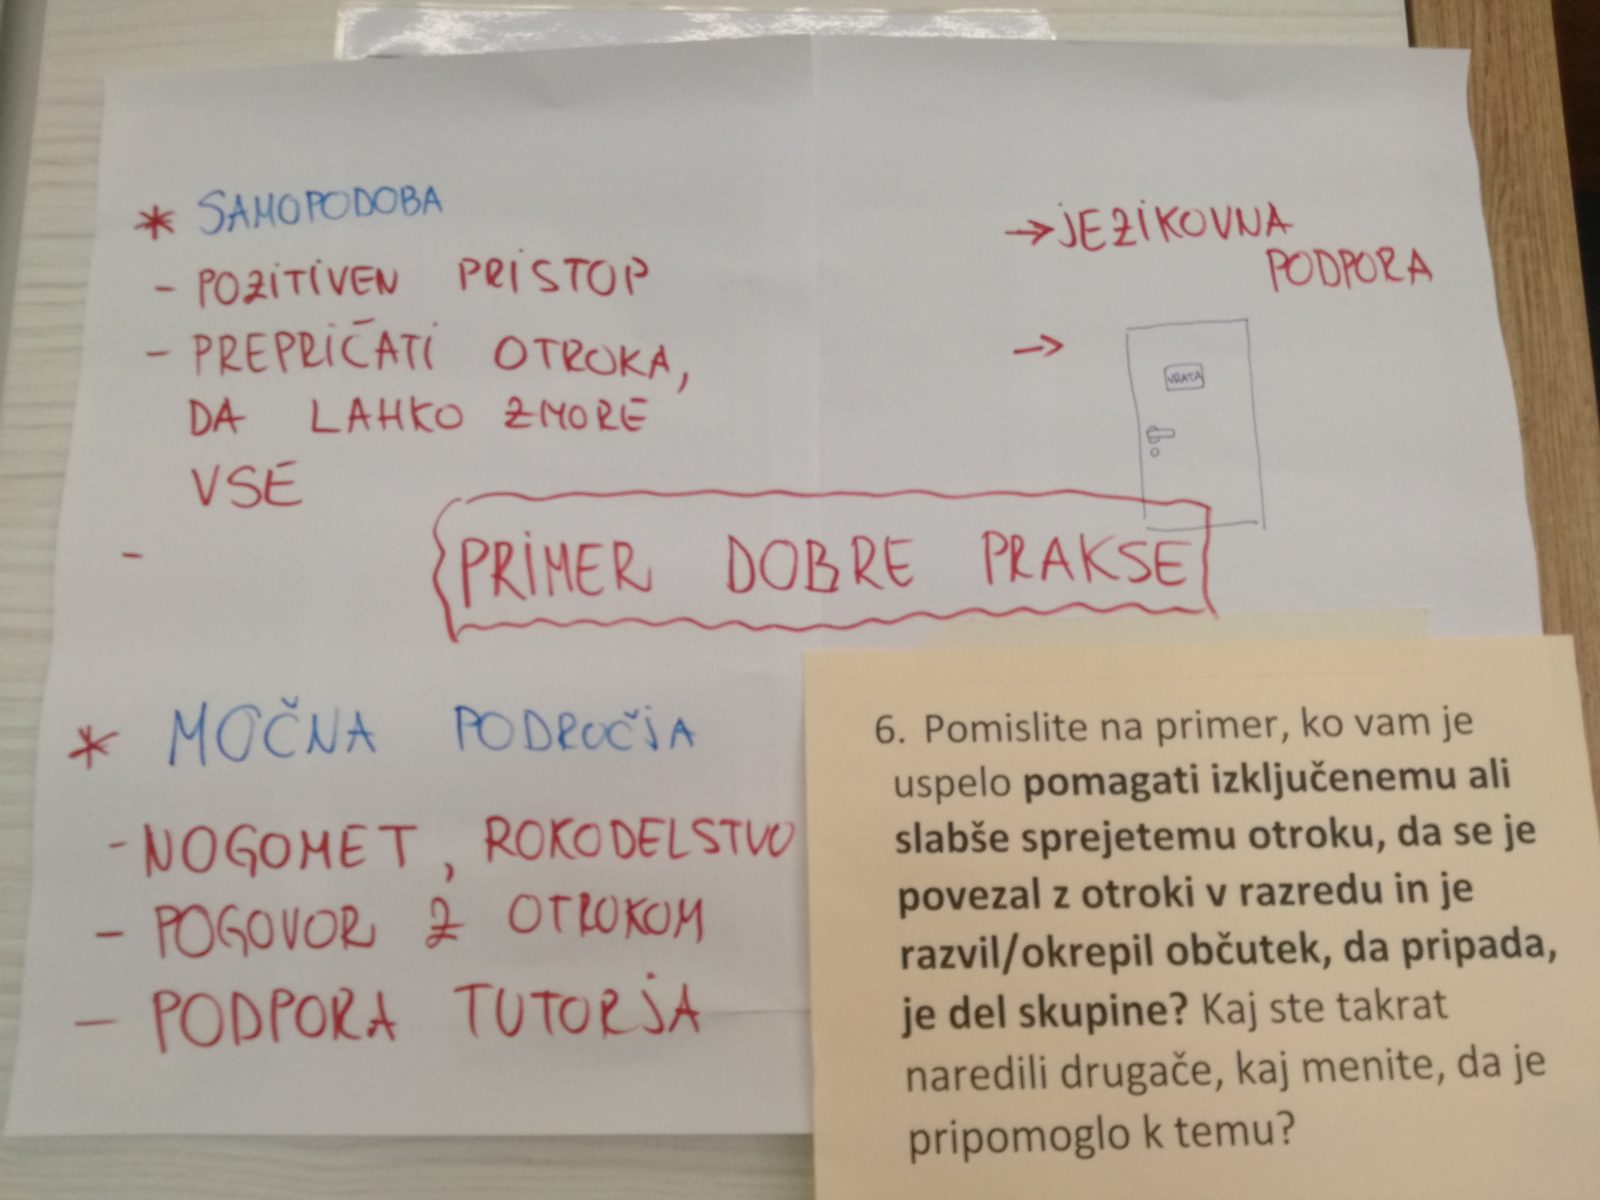 * SAMOPODOBA
- POZITIVEN PRISTOP
- PREPRIČATI OTROKA,
DA LAHKO ZMORE
VSE
-
→ JEZIKOVNA
PODPORA
→
VRATA
PRIMER DOBRE PRAKSE
* MOČNA PODROČJA
- NOGOMET, ROKODELSTVO
- POGOVOR Z OTROKOM
- PODPORA TUTORJA
6. Pomislite na primer, ko vam je
uspelo pomagati izključenemu ali
slabše sprejetemu otroku, da se je
povezal z otroki v razredu in je
razvil/okrepil občutek, da pripada,
je del skupine? Kaj ste takrat
naredili drugače, kaj menite, da je
pripomoglo k temu?